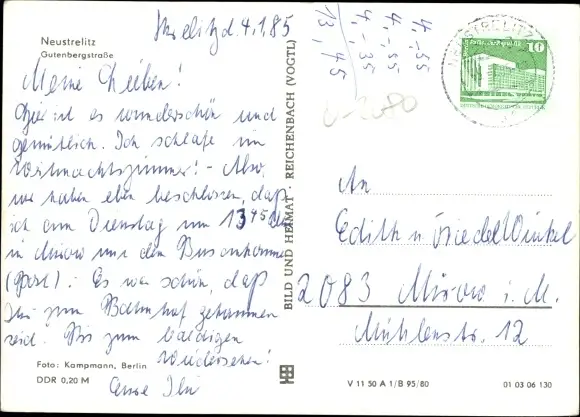 Neustrelitz
Gutenbergstraße
Strelitz d. 4.1.85
Meine Lieben!
Hier ist es wunderschön und
gemütlich. Ich schlafe im
Weihnachtszimmer! - Also,
wir haben eben beschlossen, daß
ich am Dienstag um 13 45 Uhr
in Mirow mit dem Bus ankomme
(Post). Es war schön, daß
Ihr zum Bahnhof gekommen
seid. Bis zum baldigen
Wiedersehen!
Eure
Foto: Kampmann, Berlin
DDR 0,20 M
BILD UND HEIMAT · REICHENBACH (VOGTL)
4.-55
4.-55
4.-35
13,45
NEUSTRELITZ
10
An
Edith u. Friedel Winkel
2083 Mirow i. M.
Mühlenstr. 12
V 11 50 A 1/B 95/80
01 03 06 130